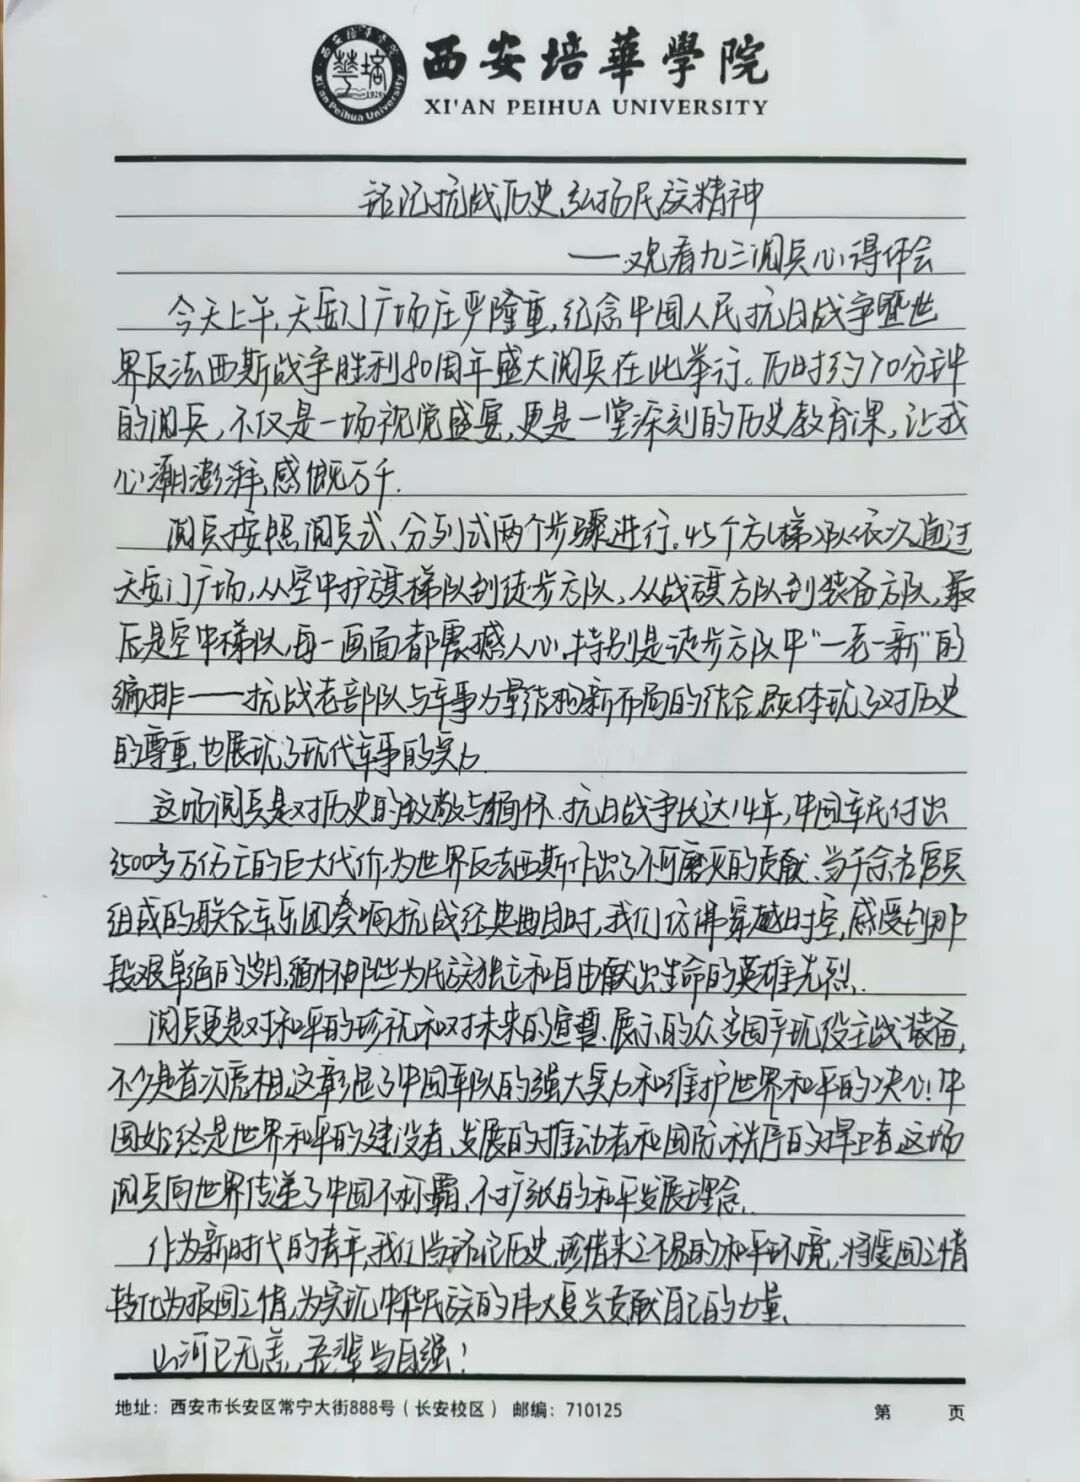 西安培華學院
XI'AN PEIHUA UNIVERSITY
铭记抗战历史,弘扬民族精神
——观看九三阅兵心得体会
今天上午,天安门广场庄严隆重,纪念中国人民抗日战争暨世
界反法西斯战争胜利80周年盛大阅兵在此举行。历时约70分钟
的阅兵,不仅是一场视觉盛宴,更是一堂深刻的历史教育课,让我
心潮澎湃,感慨万千.
阅兵按照阅兵式、分列式两个步骤进行。45个方(梯)队依次通过
天安门广场,从空中护旗梯队到徒步方队,从战旗方队到装备方队,最
后是空中梯队,每一画面都震撼人心.特别是徒步方队中"一老一新"的
编排——抗战老部队与军事力量结构新布局的结合,既体现了对历史
的尊重,也展现了现代军事的实力.
这场阅兵是对历史的致敬与缅怀.抗日战争长达14年,中国军民付出
3500多万伤亡的巨大代价,为世界反法西斯作出了不可磨灭的贡献.当千余名官兵
组成的联合军乐团奏响抗战经典曲目时,我们仿佛穿越时空,感受到那
段艰卓绝的岁月,缅怀那些为民族独立和自由献出生命的英雄先烈.
阅兵更是对和平的珍视和对未来的宣誓.展示的众多国产现役主战装备,
不少是首次亮相,这彰显了中国军队的强大实力和维护世界和平的决心!中
国始终是世界和平的建设者,发展的推动者和国际秩序的捍卫者,这场
阅兵向世界传递了中国不称霸,不扩张的和平发展理念.
作为新时代的青年,我们当铭记历史,珍惜来之不易的和平环境,将爱国之情
转化为报国之情,为实现中华民族的伟大复兴贡献自己的力量.
山河已无恙,吾辈当自强!
地址:西安市长安区常宁大街888号(长安校区) 邮编:710125
第 页